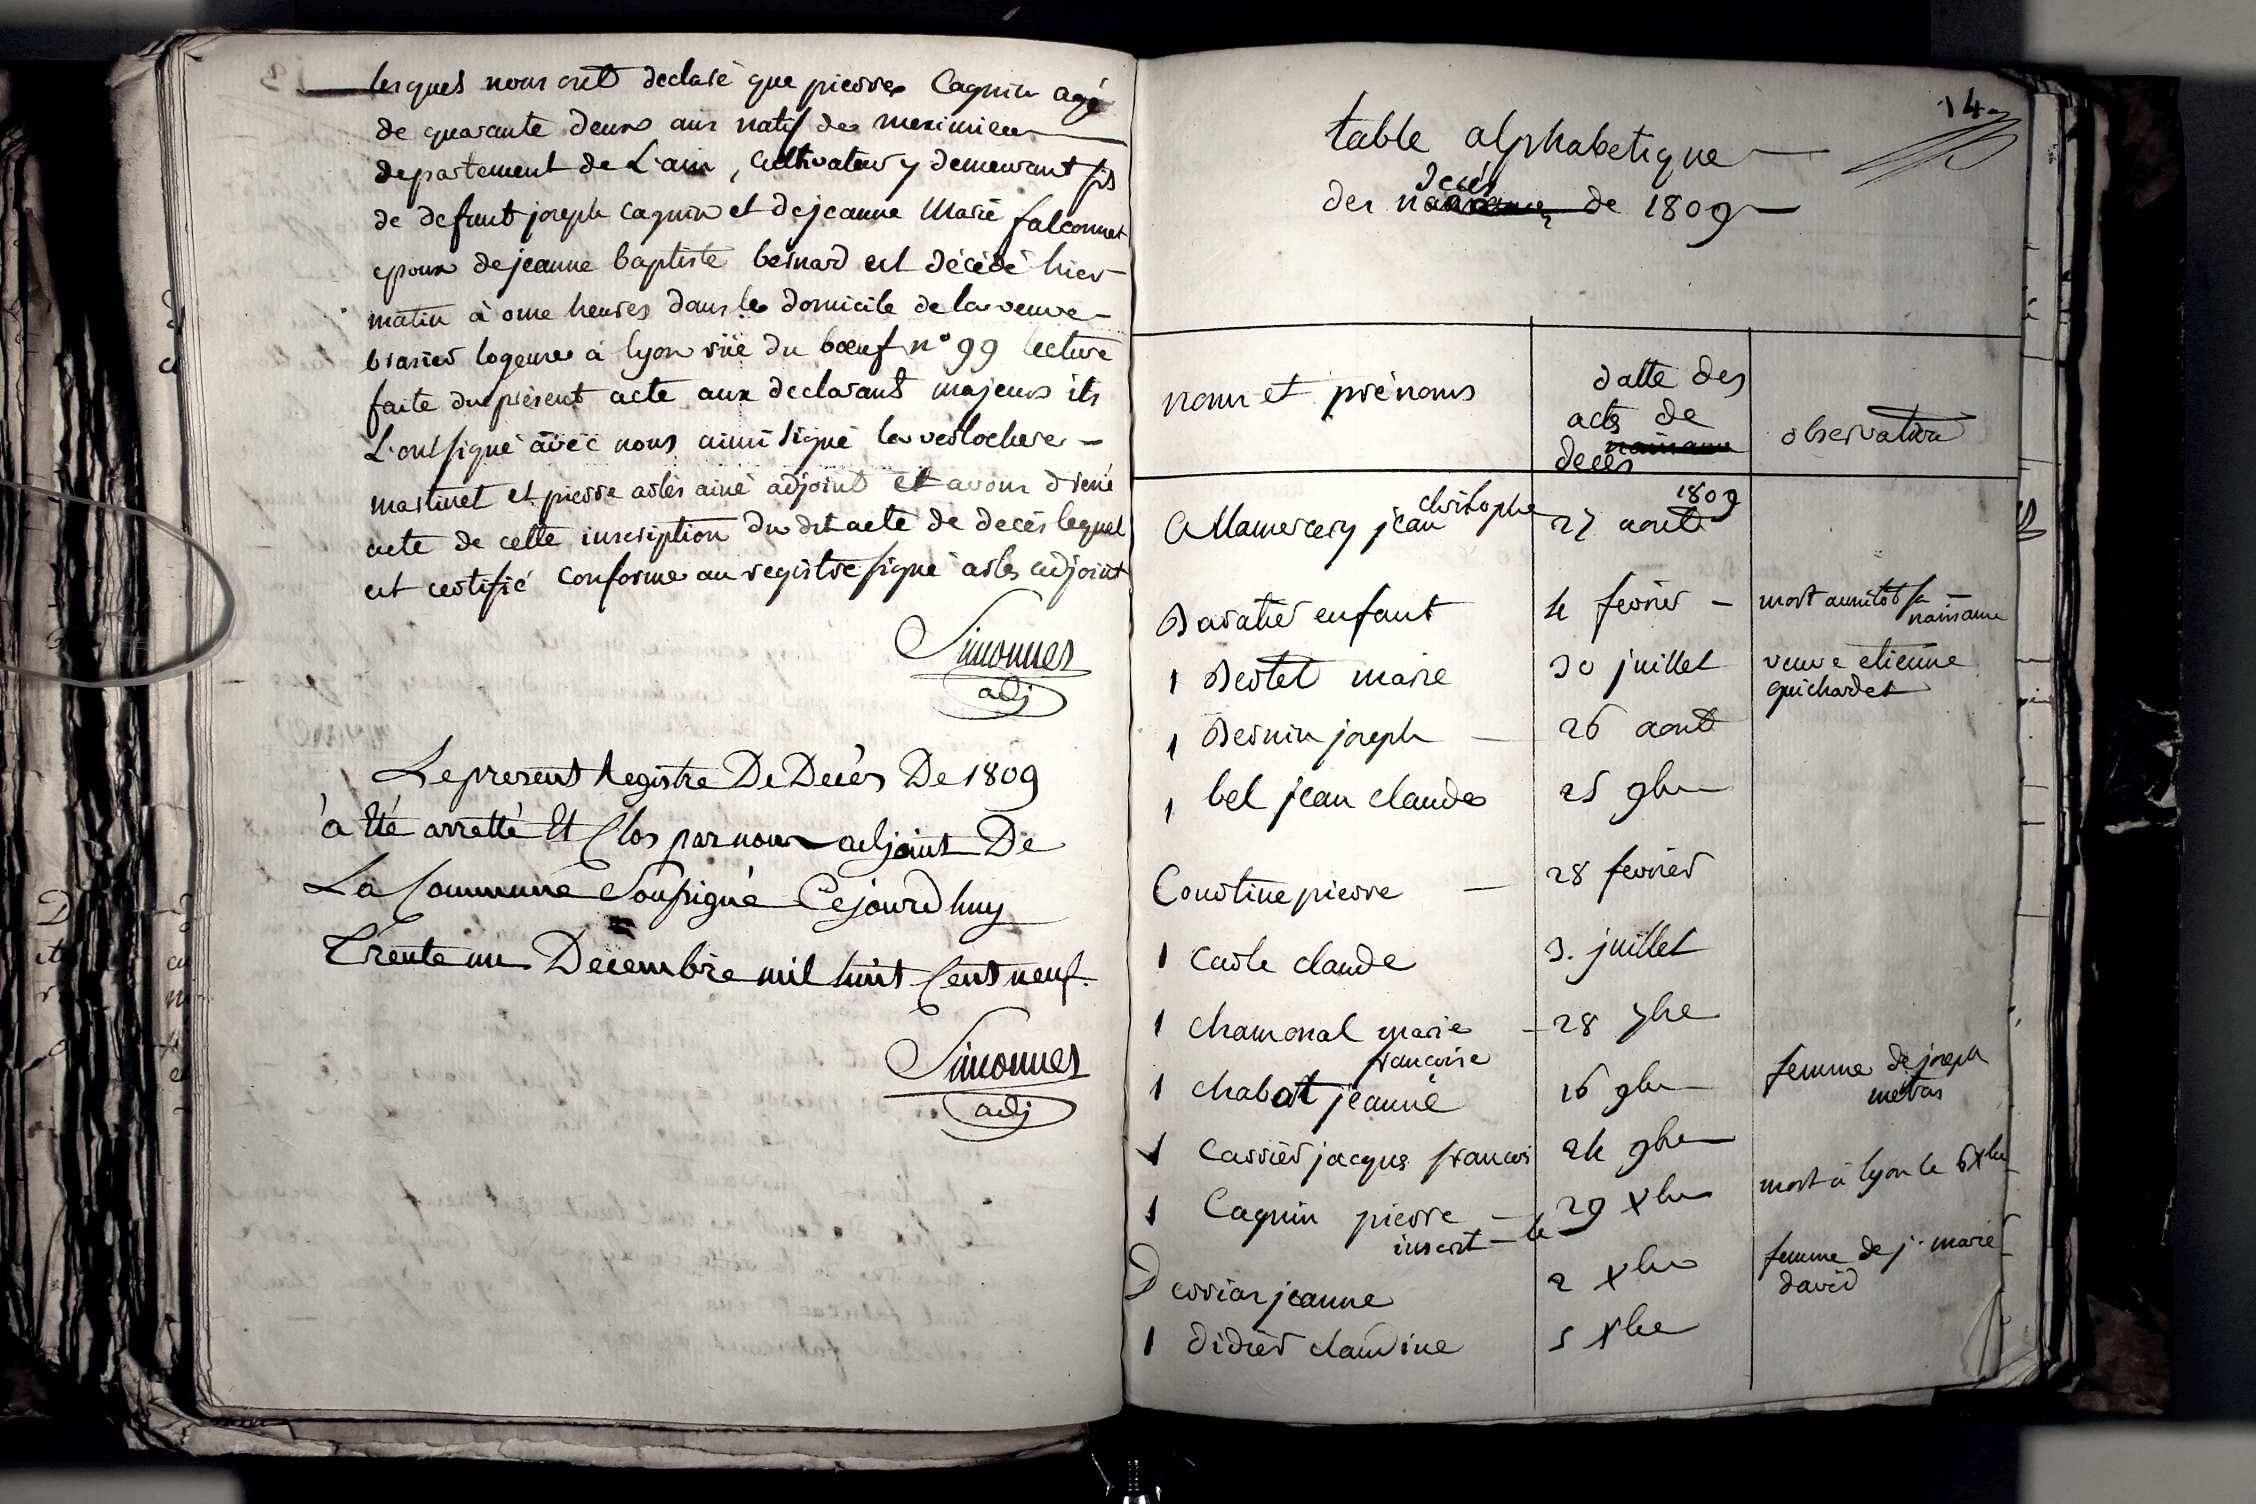 lesquels nous ont declaré que pierre Cagnin agé
de quarante deux ans natif de meximieu
departement de L'ain, Cultivateur y demeurant fils
de defunt joseph cagnin et de jeanne Marie falconnet
epoux de jeanne baptiste bernard est décédé hier
matin à onze heures dans le domicile de la veuve
brasier logeuse à lyon rüe du bœuf n° 99 lecture
faite du présent acte aux declarants majeurs ils
L'ont signé avéc nous ainsi signé
martinet et pierre arlès ainé adjoint et avons dressé
acte de cette inscription du dit acte de decés lequel
est certifié conforme au registre signé arles adjoint
Simonnet
adj
Le present Registre De Decès De 1809
à Eté arretté Et Clos par nous adjoint De
La Commune Soussigné Cejourdhuy
Trente un Decembre mil huit Cent neuf.
Simonnet
adj
14
table alphabetique
decés
des naissances de 1809
noms et prénoms
datte des
acts de
naissance
deces
observation
christophe 1809
allamercery jean 27 aout
Baratier enfant 4 fevrier - mort aussitôt sa
naissance
1 Bertet marie 30 juillet veuve etienne
guichardet
1 Bernin joseph - 26 aout
1 bel jean claude 25 9bre
Courtine pierre - 28 fevrier
1 Carle claude 3. juillet
1 chamonal marie - 28 7bre
francoise
1 chabot jeanne 16 9bre femme de joseph
metras
1 Carrier jacques francois 24 9bre
1 Cagnin pierre - 29 xbre mort à lyon le 6 xbre
inscrit - le
Dervian jeanne 2 xbre femme de j. marie
david
1 didier claudine 5 xbre